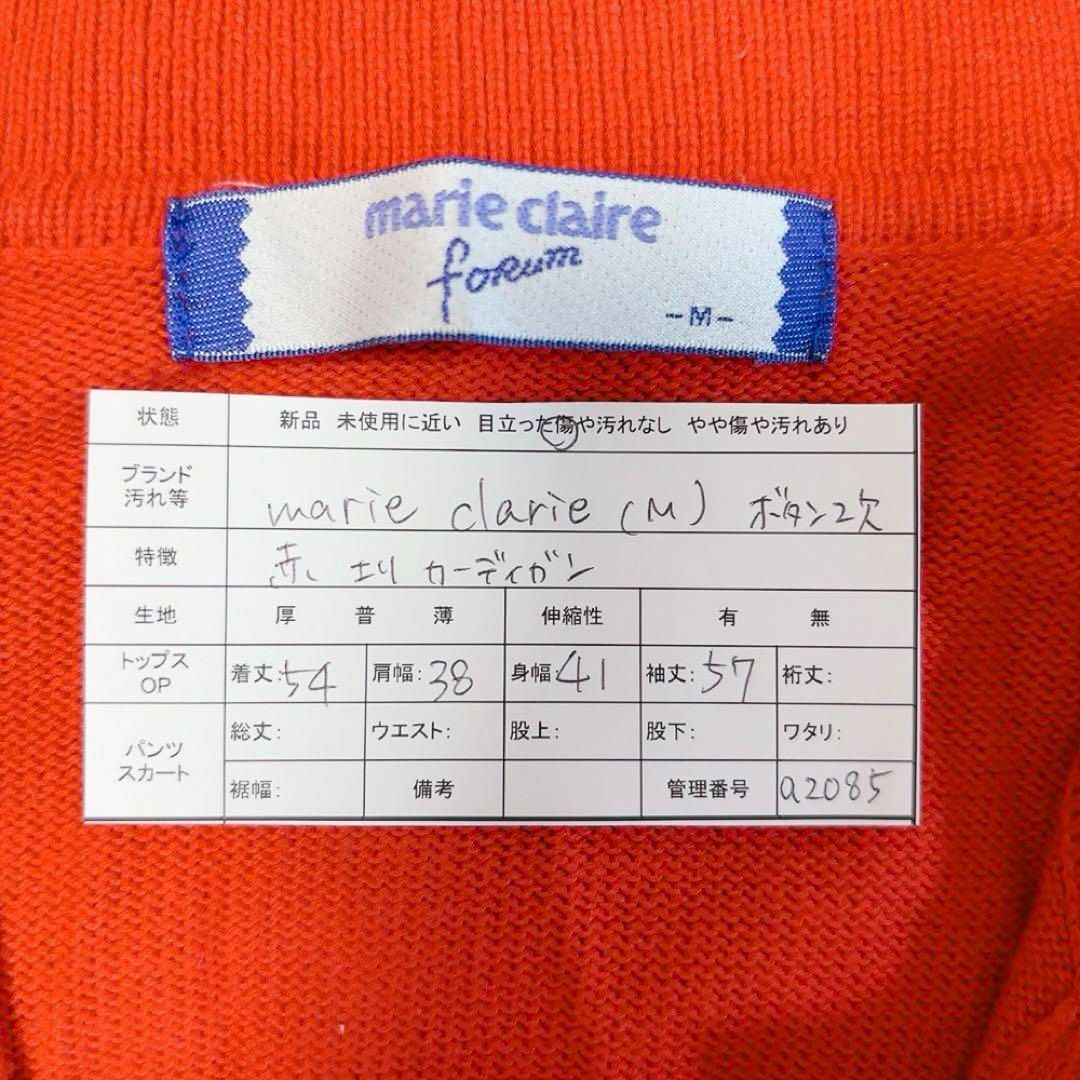 marie claire
forum
-M-
状態 新品 未使用に近い 目立った傷や汚れなし やや傷や汚れあり
ブランド
汚れ等 marie clarie (M) ボタン欠
特徴 赤 エリ カーディガン
生地 厚 普 薄 伸縮性 有 無
トップス
OP 着丈:54 肩幅:38 身幅:41 袖丈:57 裄丈:
パンツ
スカート 総丈: ウエスト: 股上: 股下: ワタリ:
裾幅: 備考 管理番号 a2085